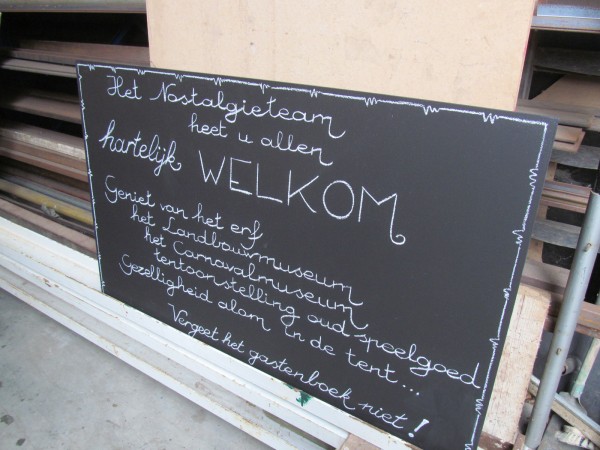 Het Nostalgieteam
heet u allen
hartelijk WELKOM
Geniet van het erf
het Landbouwmuseum
het Carnavalmuseum
tentoonstelling oud speelgoed
Gezelligheid alom in de tent...
Vergeet het gastenboek niet!